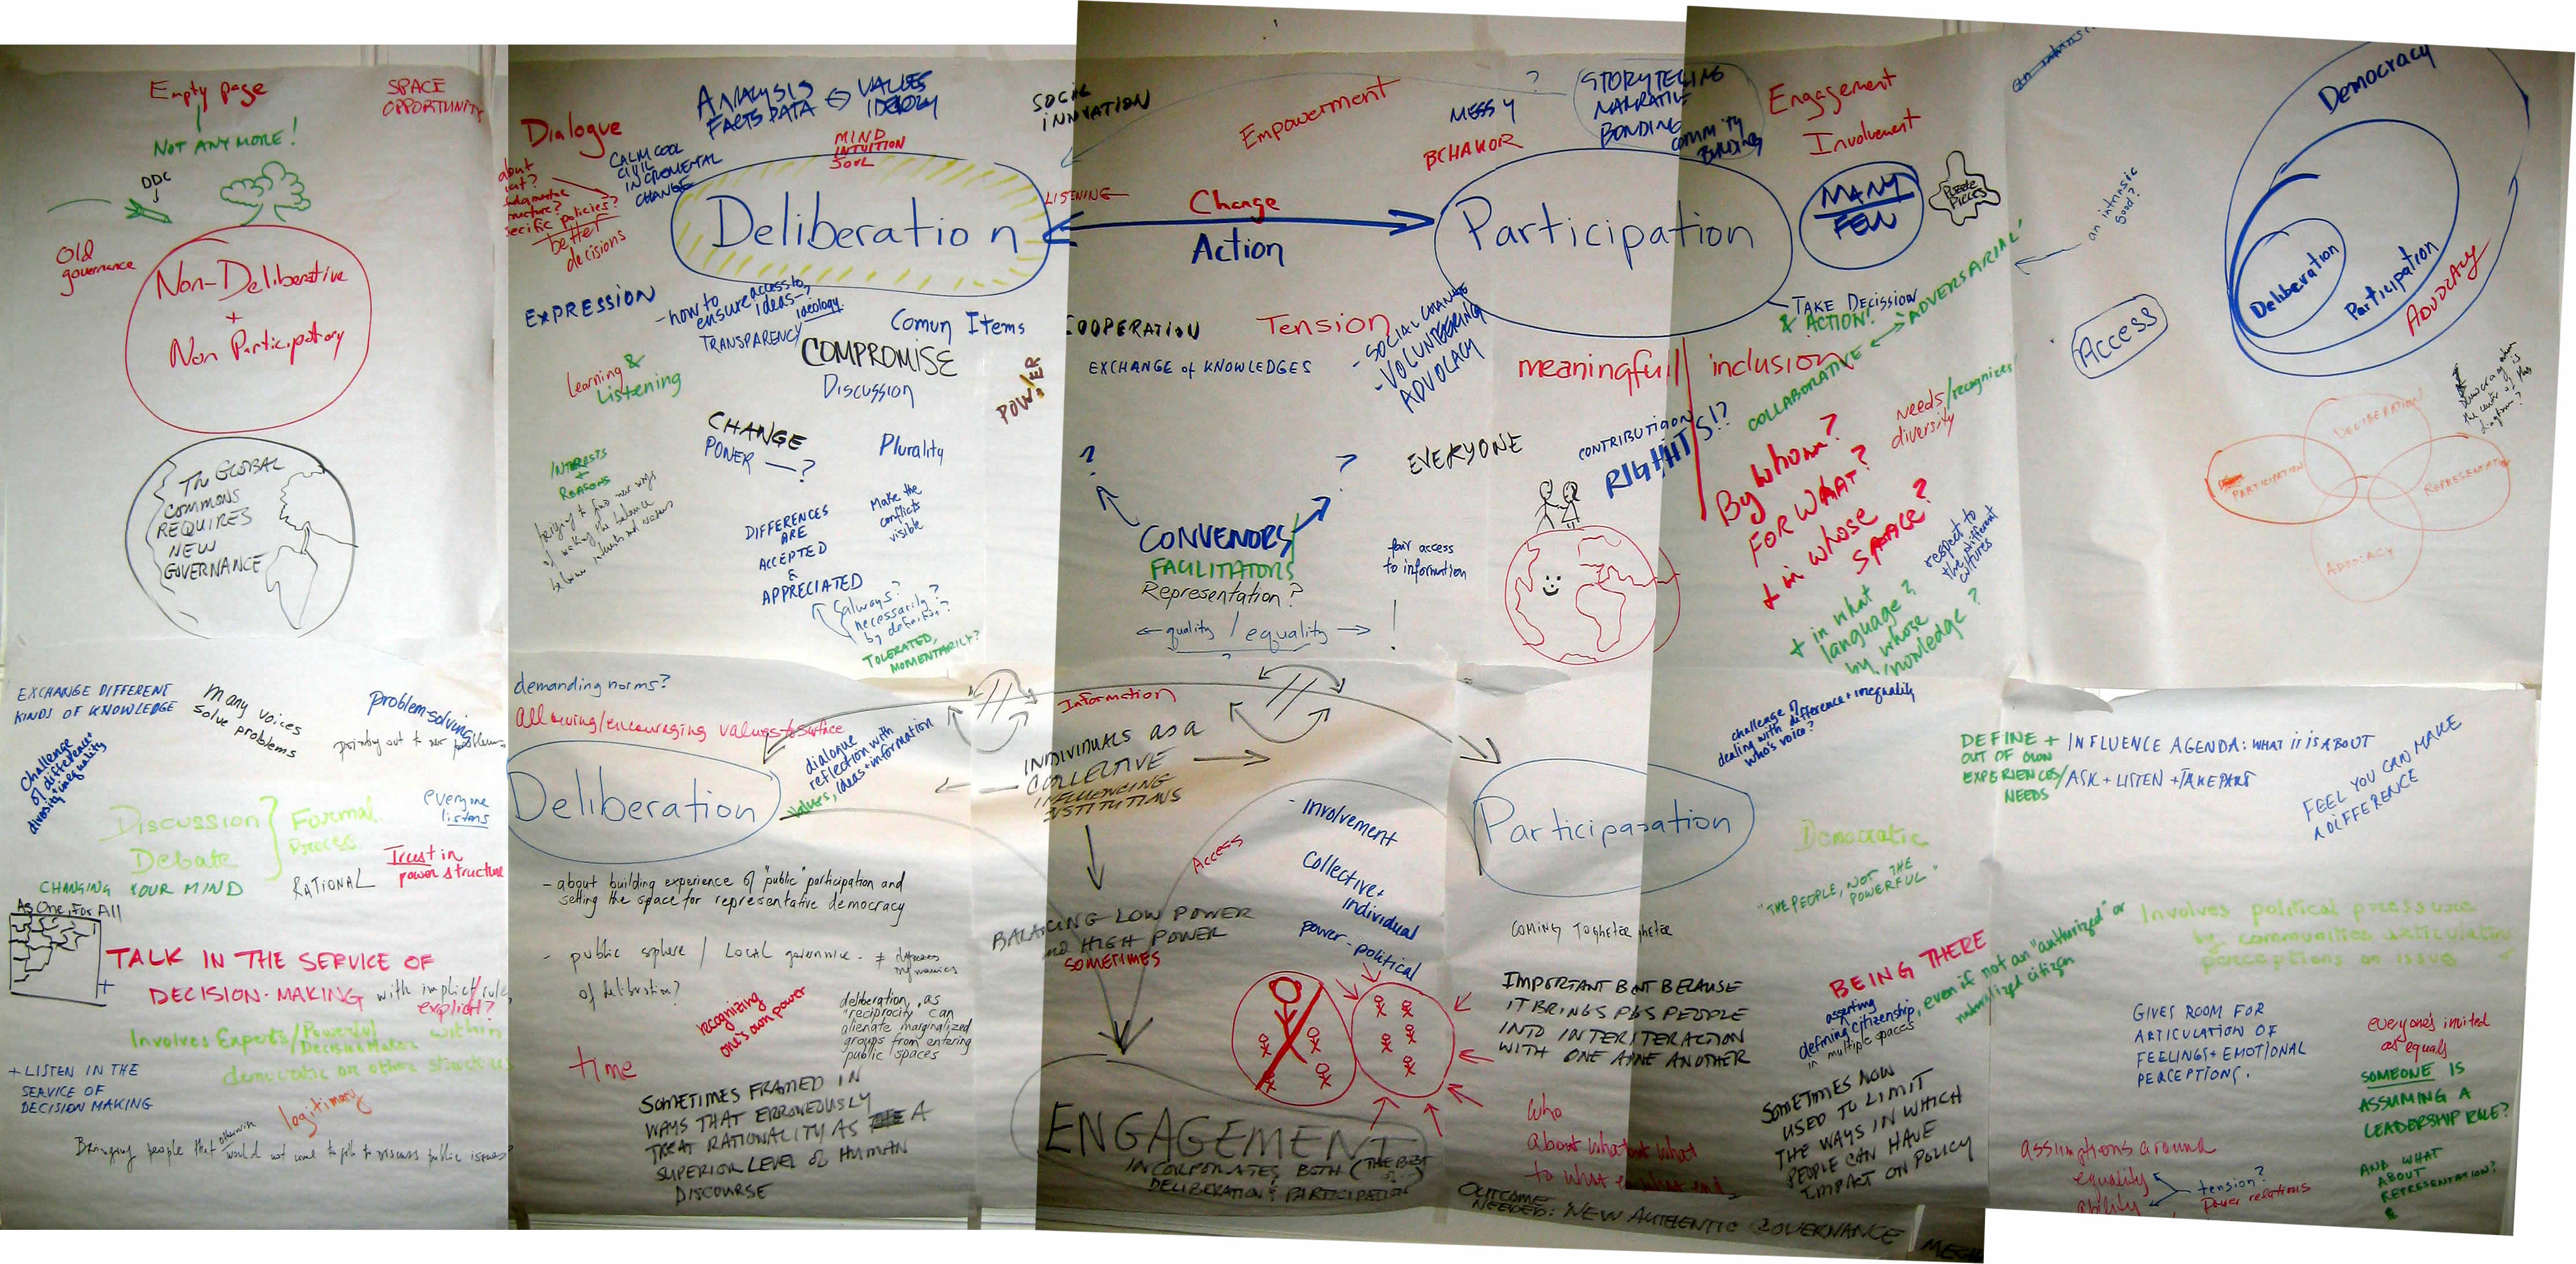 Empty page
NOT ANY MORE!
SPACE
OPPORTUNITY
DDC
Old
governance
Non-Deliberative
+
Non Participatory
THE GLOBAL
COMMONS
REQUIRES
NEW
GOVERNANCE
Dialogue
about
judgmental
structure?
specific policies?
better
decisions
CALM COOL
CIVIL
INCREMENTAL
CHANGE
ANALYSIS
FACTS DATA
VALUES
IDEOLOGY
MIND
INTUITION
SOUL
Deliberation
LISTENING
SOCIAL
INNOVATION
EXPRESSION
- how to
ensure access to
ideas -
ideology.
TRANSPARENCY
Comun Items
COMPROMISE
Discussion
Learning &
Listening
POWER
CHANGE
POWER — ?
Plurality
INTERESTS
+
REASONS
DIFFERENCES
ARE
ACCEPTED
&
APPRECIATED
Make the
conflicts
visible
always?
necessarily?
by definition?
TOLERATED,
MOMENTARILY?
Empowerment
MESSY
BEHAVIOR
?
STORYTELLING
NARRATIVE
BONDING
COMM'TY
BUILDING
Change
Action
Participation
Engagement
Involvement
MANY
FEW
PUZZLE
PIECES
COOPERATION
EXCHANGE of KNOWLEDGES
Tension
- SOCIAL CHANGE
- VOLUNTEERING
ADVOCACY
TAKE DECISSION
& ACTION!
ADVERSARIAL
COLLABORATIVE
meaningfull
inclusion
needs/recognizes
diversity
?
?
CONVENORS
FACILITATORS
Representation?
quality / equality
?
EVERYONE
CONTRIBUTION
RIGHTS!?
fair access
to information
!
By whom?
FOR WHAT?
+ in whose
SPACE?
+ in what
language?
by whose
knowledge?
respect to
the different
cultures
an intrinsic
good?
Access
Democracy
Deliberation
Participation
ADVOCACY
Democracy when
the center of this
diagram?
DELIBERATION
PARTICIPATION
REPRESENTATION
ADVOCACY
EXCHANGE DIFFERENT
KINDS OF KNOWLEDGE
many voices
solve problems
problem-solving
pointing out to new problems
Challenge
of difference +
diversity + inequality
Discussion
Debate
Formal
Process
everyone
listens
CHANGING YOUR MIND
RATIONAL
Trust in
power structure
As One, For All
TALK IN THE SERVICE OF
DECISION-MAKING with implicit rules
explicit?
Involves Experts/Powerful
Decision Maker within
democratic or other structures
+ LISTEN IN THE
SERVICE OF
DECISION MAKING
legitimacy
Bringing people that otherwise would not come to discuss public issues
demanding norms?
allowing/encouraging values to surface
Deliberation
dialogue
reflection with
values, ideas + information
- about building experience of "public" participation and
setting the space for representative democracy
- public sphere / Local governance - ≠
of deliberation?
recognizing
one's own power
deliberation, as
"reciprocity can
alienate marginalized
groups from entering
public spaces
time
SOMETIMES FRAMED IN
WAYS THAT ERRONEOUSLY
TREAT RATIONALITY AS A
SUPERIOR LEVEL OF HUMAN
DISCOURSE
Information
INDIVIDUALS as a
COLLECTIVE
INFLUENCING
INSTITUTIONS
BALANCING LOW POWER
AND HIGH POWER
SOMETIMES
Access
- Involvement
Collective +
individual
power - political
ENGAGEMENT
INCORPORATES BOTH (THE BEST
OF:)
DELIBERATION & PARTICIPATION
Participasation
challenge of
dealing with difference + inequality
who's voice?
COMING TOGHETER
IMPORTANT BUT BECAUSE
IT BRINGS PEOPLE
INTO INTERACTION
WITH ONE ANOTHER
Who
about what
to what end
OUTCOME
NEEDED: NEW AUTHENTIC GOVERNANCE
Democratic
"THE PEOPLE, NOT THE
POWERFUL"
BEING THERE
asserting
defining citizenship, even if not an "authorized" or
naturalized citizen
in multiple spaces
SOMETIMES NOW
USED TO LIMIT
THE WAYS IN WHICH
PEOPLE CAN HAVE
IMPACT ON POLICY
DEFINE + INFLUENCE AGENDA: WHAT IT IS ABOUT
OUT OF OWN
EXPERIENCES/ASK + LISTEN + TAKE PART
NEEDS
FEEL YOU CAN MAKE
A DIFFERENCE
Involves political pressure
by communities articulating
perceptions on issue
GIVES ROOM FOR
ARTICULATION OF
FEELINGS + EMOTIONAL
PERCEPTIONS.
everyone's invited
as equals
SOMEONE IS
ASSUMING A
LEADERSHIP ROLE?
AND WHAT
ABOUT
REPRESENTATION?
assumptions around
equality
ability
tension?
Power relations